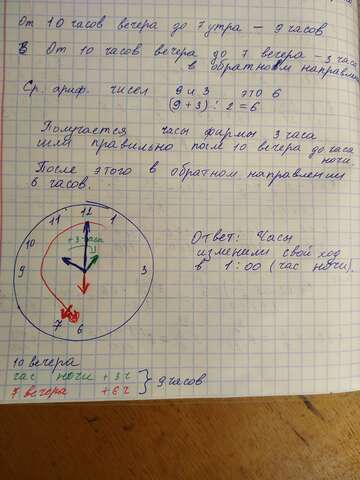 От 10 часов вечера до 7 утра – 9 часов
В От 10 часов вечера до 7 вечера – 3 часа
в обратном направле
Ср. ариф. чисел 9 и 3 это 6
(9+3):2=6
Получается часы фирмы 3 часа
шли правильно после 10 вечера до часа
ночи.
После этого в обратном направлении
6 часов.
12
11
1
10
+3 часа
9
3
7
6
Ответ: Часы
изменили свой ход
в 1:00 (час ночи).
10 вечера
час ночи +3ч
7 вечера +6ч
9 часов